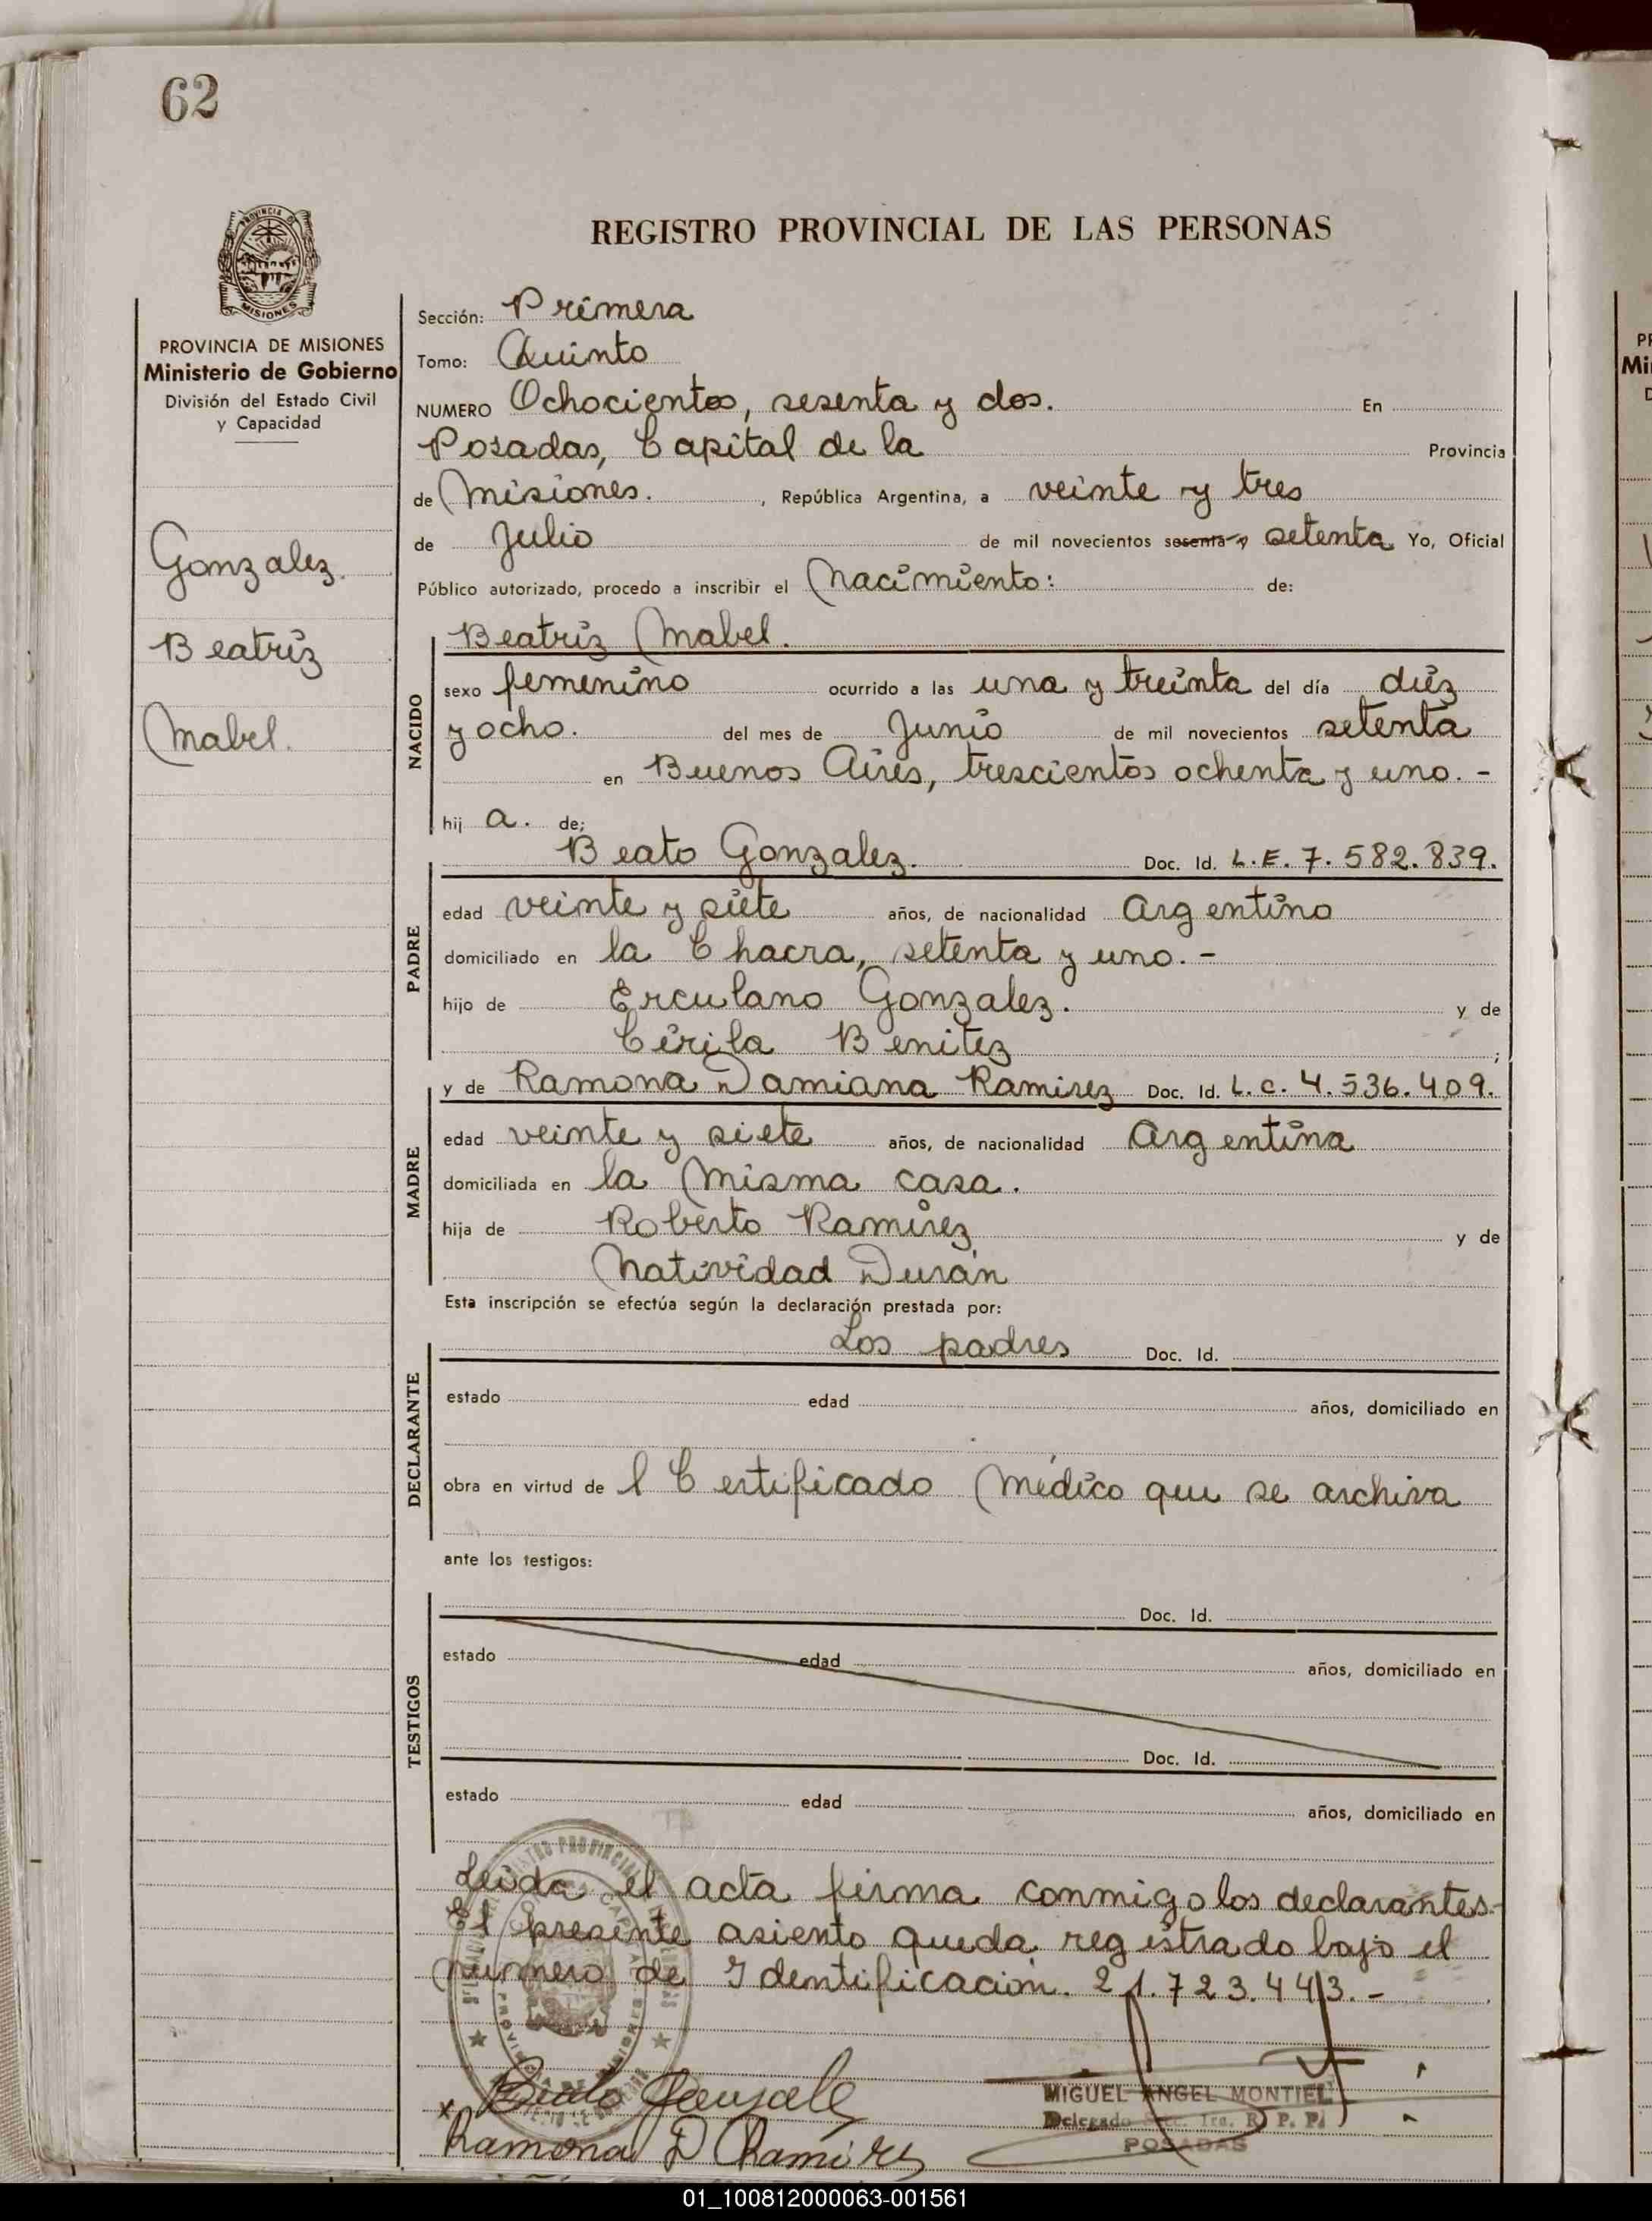 62
REGISTRO PROVINCIAL DE LAS PERSONAS
PROVINCIA DE
MISIONES
PROVINCIA DE MISIONES
Ministerio de Gobierno
División del Estado Civil
y Capacidad
Gonzalez.
Beatriz
Mabel.
Sección: Primera
Tomo: Quinto
NUMERO Ochocientos, sesenta y dos. En
Posadas, Capital de la Provincia
de Misiones. , República Argentina, a veinte y tres
de Julio de mil novecientos sesenta y setenta Yo, Oficial
Público autorizado, procedo a inscribir el Nacimiento: de:
NACIDO
Beatriz Mabel.
sexo femenino ocurrido a las una y treinta del día diéz
y ocho. del mes de Junio de mil novecientos setenta
en Buenos Aires, trescientos ochenta y uno. -
hij a. de;
PADRE
Beato Gonzalez. Doc. Id. L.E. 7.582.839.
edad veinte y siete años, de nacionalidad Argentino
domiciliado en la Chacra, setenta y uno. -
hijo de Erculano Gonzalez. y de
Cirila Benitez ;
MADRE
y de Ramona Damiana Ramirez Doc. Id. L.C. 4.536.409.
edad veinte y siete años, de nacionalidad Argentina
domiciliada en la Misma casa.
hija de Roberto Ramirez y de
Natividad Durán
Esta inscripción se efectúa según la declaración prestada por:
DECLARANTE
Los padres Doc. Id.
estado edad años, domiciliado en
obra en virtud de l Certificado Médico que se archiva
ante los testigos:
TESTIGOS
Doc. Id.
estado edad años, domiciliado en
Doc. Id.
estado edad años, domiciliado en
Leida el acta firma conmigo los declarantes-
El presente asiento queda registrado bajo el
número de Identificación. 21.723.443. -
Beato Gonzalez
Ramona D Ramirez
MIGUEL ANGEL MONTIEL
Delegado Sec. 1ra. R. P. P.
POSADAS
01_100812000063-001561